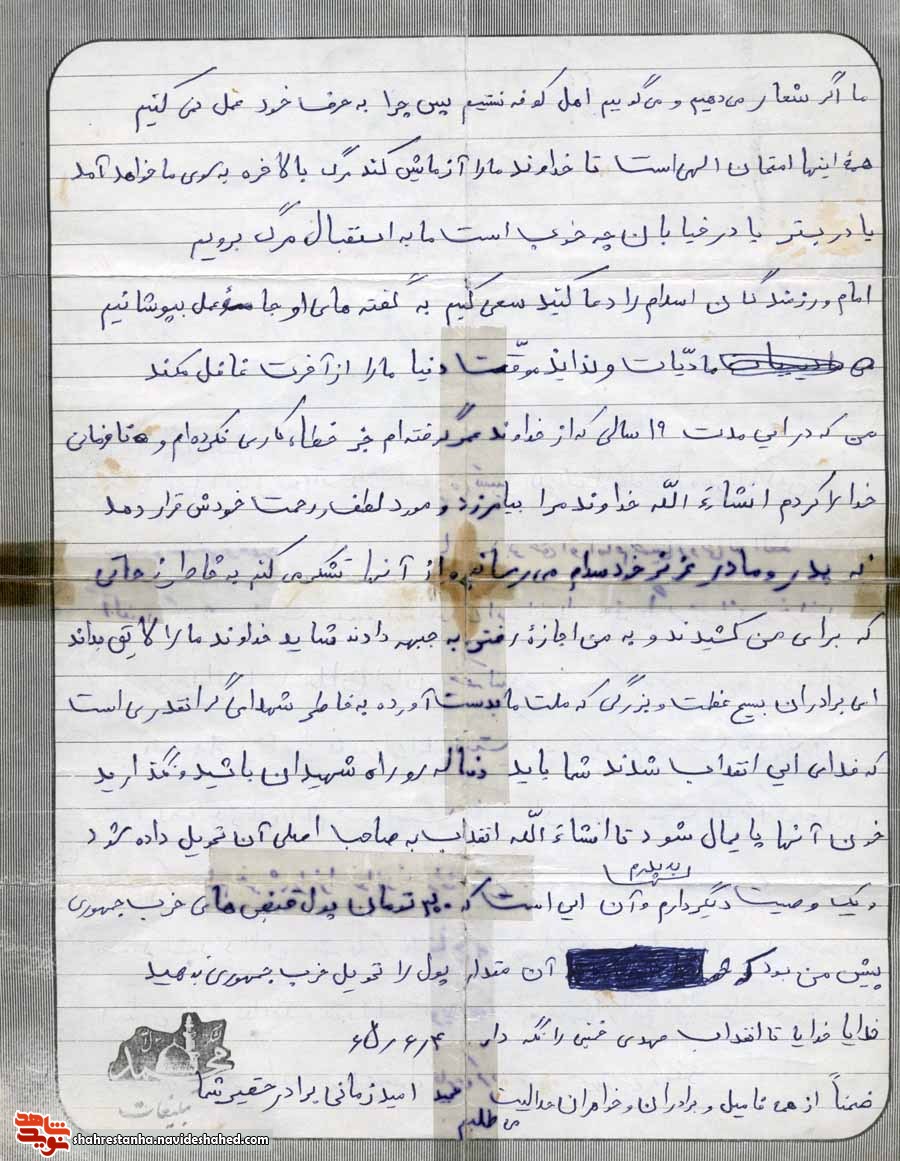 ما اگر شعار می‌دهیم و می‌گوییم اهل کوفه نیستیم پس چرا به حرف خود عمل نمی کنیم
همهٔ اینها امتحان الهی است تا خداوند ما را آزمایش کند مرگ بالاخره به سوی ما خواهد آمد
یا در بستر یا در خیابان چه خوب است ما به استقبال مرگ برویم
امام و رزمندگان اسلام را دعا کنید سعی کنیم به گفته های او جامه عمل بپوشانیم
مادیّات و لذایذ موقّت دنیا ما را از آخرت غافل نکند
من که در این مدت ۱۹ سالی که از خداوند عمر گرفته‌ام جز خطا کاری نکرده‌ام و نافرمانی
خدا را کردم انشاءَ اللّه خداوند مرا بیامرزد و مورد لطف و رحمت خودش قرار دهد
به پدر و مادر عزیز خود سلام می رسانم و از آنها تشکر می کنم به خاطر زحماتی
که برای من کشیدند و به من اجازهٔ رفتن به جبهه دادند شاید خداوند ما را لایق بداند
ای برادران بسیج عظمت و بزرگی که ملت ما بدست آورده به خاطر شهدای گرانقدری است
که فدای این انقلاب شدند شما باید دنباله رو راه شهیدان باشید و نگذارید
خون آنها پایمال شود تا انشاءَ اللّه انقلاب به صاحب اصلی آن تحویل داده شود
به پدرم
و یک وصیت دیگر دارم و آن این است که تومان پول قبض های حزب جمهوری
پیش من بود که آن مقدار پول را تحویل حزب جمهوری بدهید
خدایا خدایا تا انقلاب مهدی خمینی را نگه دار ۶۵/۶/۴
ضمناً از همه فامیل و برادران و خواهران حلالیت می طلبم امید زمانی برادر حقیر شما
تبلیغات
نوید شاهد
shahrestanha.navideshahed.com